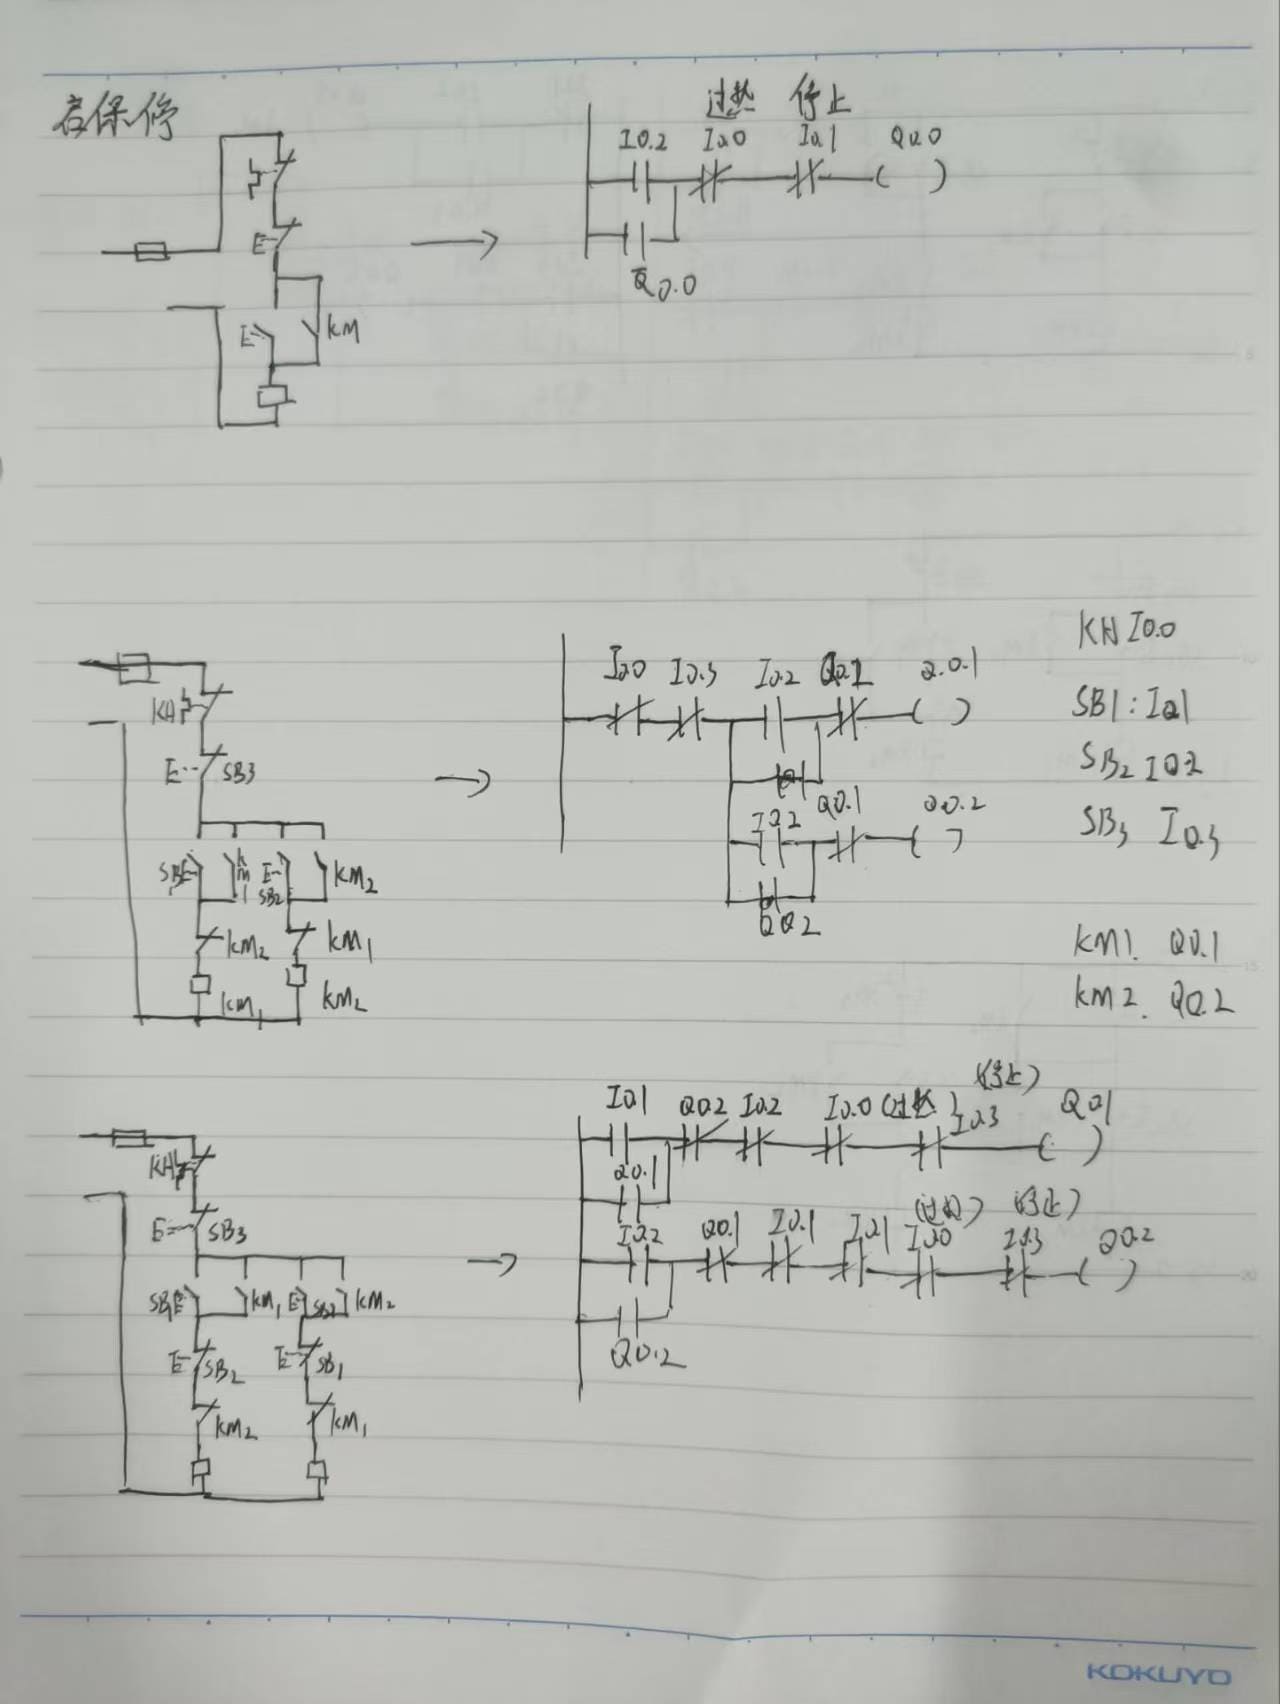 启保停
过热 停止
I0.2 I0.0 I0.1 Q0.0
Q0.0
E
E
E
KM
KH
E
SB3
SB1 E
KM1
E
SB2
KM2
KM2
KM1
KM1
KM2
I0.0 I0.3 I0.2 Q0.2 Q0.1
I0.2 Q0.1 Q0.2
Q0.2
KH I0.0
SB1: I0.1
SB2 I0.2
SB3 I0.3
KM1. Q0.1
KM2. Q0.2
KH
E
SB3
SB1 E
KM1
E
SB2
KM2
E
SB2
E
SB1
KM2
KM1
(停止)
I0.1 Q0.2 I0.2 I0.0 (过热) I0.3 Q0.1
Q0.1
(过热) (停止)
I0.2 Q0.1 I0.1 I0.1 I0.0 I0.3 Q0.2
Q0.2
KOKUYO